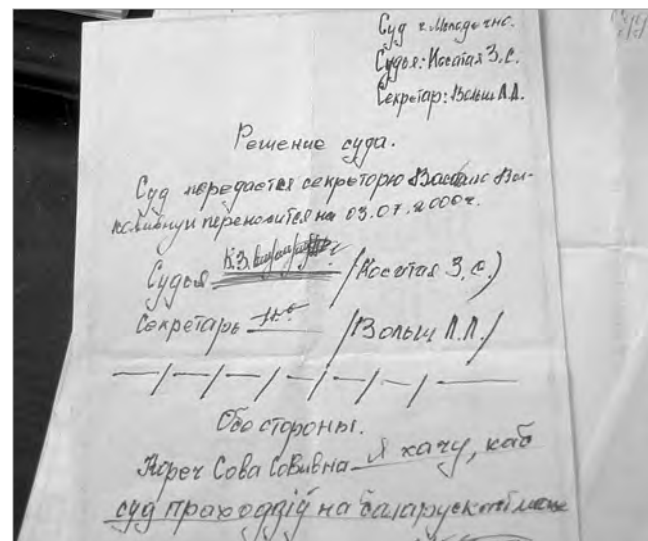 Суд г. Молодечно.
Судья: Косатая З. С.
Секретар: Вольш Л.Л.
Решение суда.
Суд передается секреторю
переносится на 03.07.2000 г.
Судья К.З. /Косатая З. С./
Секретарь /Вольш Л.Л./
—/—/—/—/—/—/—
Обо стороны.
Сова Совивна Я хачу, каб
суд праходдзіў на беларускай мове